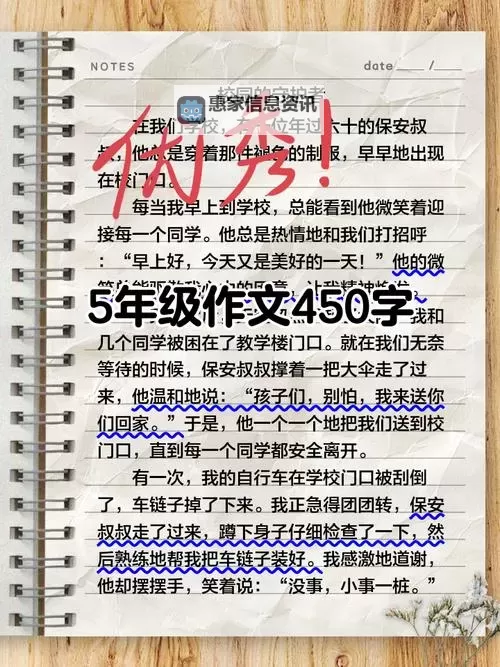 NOTES
date ____ / ____
校园的守护者
惠家信息资讯
优秀!
在我们学校,有一位年过六十的保安叔
叔,他总是穿着那件褪色的制服,早早地出现
在校门口。
每当我早上到学校,总能看到他微笑着迎
接每一个同学。他总是热情地和我们打招呼
:“早上好,今天又是美好的一天!”他的微
5年级作文450字
我和
几个同学被困在了教学楼门口。就在我们无奈
等待的时候,保安叔叔撑着一把大伞走了过
来,他温和地说:“孩子们,别怕,我来送你
们回家。”于是,他一个一个地把我们送到校
门口,直到每一个同学都安全离开。
有一次,我的自行车在学校门口被刮倒
了,车链子掉了下来。我正急得团团转,保安
叔叔走了过来,蹲下身子仔细检查了一下,然
后熟练地帮我把车链子装好。我感激地道谢,
他却摆摆手,笑着说:“没事,小事一桩。”